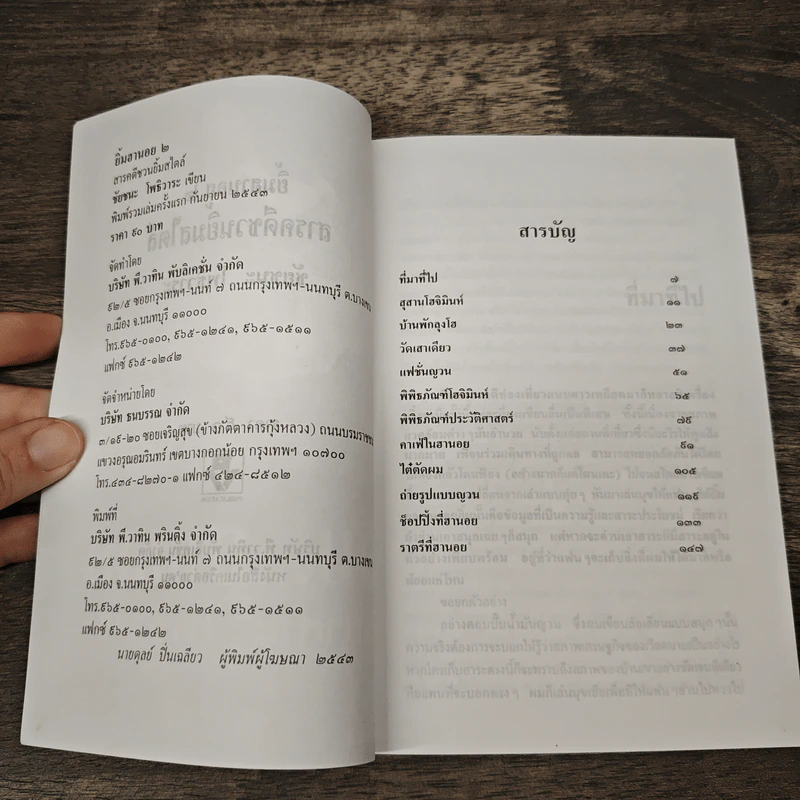 ยิ้มฮานอย ๒
สารคดีชวนยิ้มสไตล์
ชัยชนะ โพธิวาระ เขียน
พิมพ์รวมเล่มครั้งแรก กันยายน ๒๕๔๓
ราคา ๙๐ บาท
จัดทำโดย
บริษัท พี.วาทิน พับลิเคชั่น จำกัด
๙๒/๕ ซอยกรุงเทพฯ-นนท์ ๗ ถนนกรุงเทพฯ-นนทบุรี ต.บางเขน
อ.เมือง จ.นนทบุรี ๑๑๐๐๐
โทร.๙๖๕-๐๑๐๐, ๙๖๕-๑๒๔๑, ๙๖๕-๑๕๑๑
แฟกซ์ ๙๖๕-๑๒๔๒
จัดจำหน่ายโดย
บริษัท ธนบรรณ จำกัด
๓/๑๙-๒๐ ซอยเจริญสุข (ข้างภัตตาคารกุ้งหลวง) ถนนบรมราชชน
แขวงอรุณอมรินทร์ เขตบางกอกน้อย กรุงเทพฯ ๑๐๗๐๐
โทร.๔๓๔-๘๒๗๐-๑ แฟกซ์ ๔๒๔-๘๕๑๒
พิมพ์ที่
บริษัท พี.วาทิน พรินติ้ง จำกัด
๙๒/๕ ซอยกรุงเทพฯ-นนท์ ๗ ถนนกรุงเทพฯ-นนทบุรี ต.บางเขน
อ.เมือง จ.นนทบุรี ๑๑๐๐๐
โทร.๙๖๕-๐๑๐๐, ๙๖๕-๑๒๔๑, ๙๖๕-๑๕๑๑
แฟกซ์ ๙๖๕-๑๒๔๒
นายดุลย์ ปิ่นเฉลียว ผู้พิมพ์ผู้โฆษณา ๒๕๔๓
สารบัญ
ที่มาที่ไป ๗
สุสานโฮจิมินห์ ๑๑
บ้านพักลุงโฮ ๒๓
วัดเสาเดียว ๓๗
แฟชั่นญวน ๕๑
พิพิธภัณฑ์โฮจิมินห์ ๖๕
พิพิธภัณฑ์ประวัติศาสตร์ ๗๙
คาเฟ่ในฮานอย ๙๑
ไต๋ตัดผม ๑๐๕
ถ่ายรูปแบบญวน ๑๑๙
ช็อปปิ้งที่ฮานอย ๑๓๓
ราตรีที่ฮานอย ๑๔๗